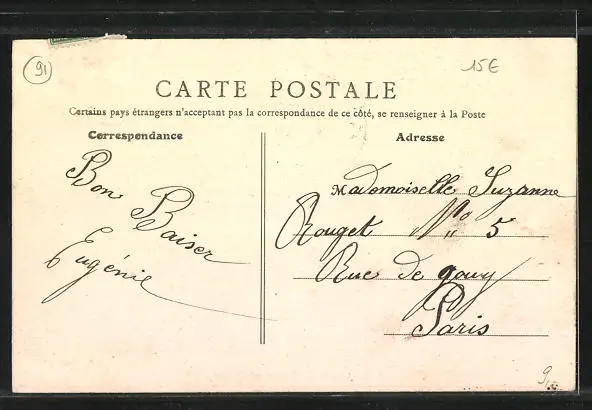 91
15€
CARTE POSTALE
Certains pays étrangers n'acceptant pas la correspondance de ce côté, se renseigner à la Poste
Correspondance
Bon
Baiser
Eugénie
Adresse
Mademoiselle Suzanne
Rouget No 5
Rue de gouy
Paris